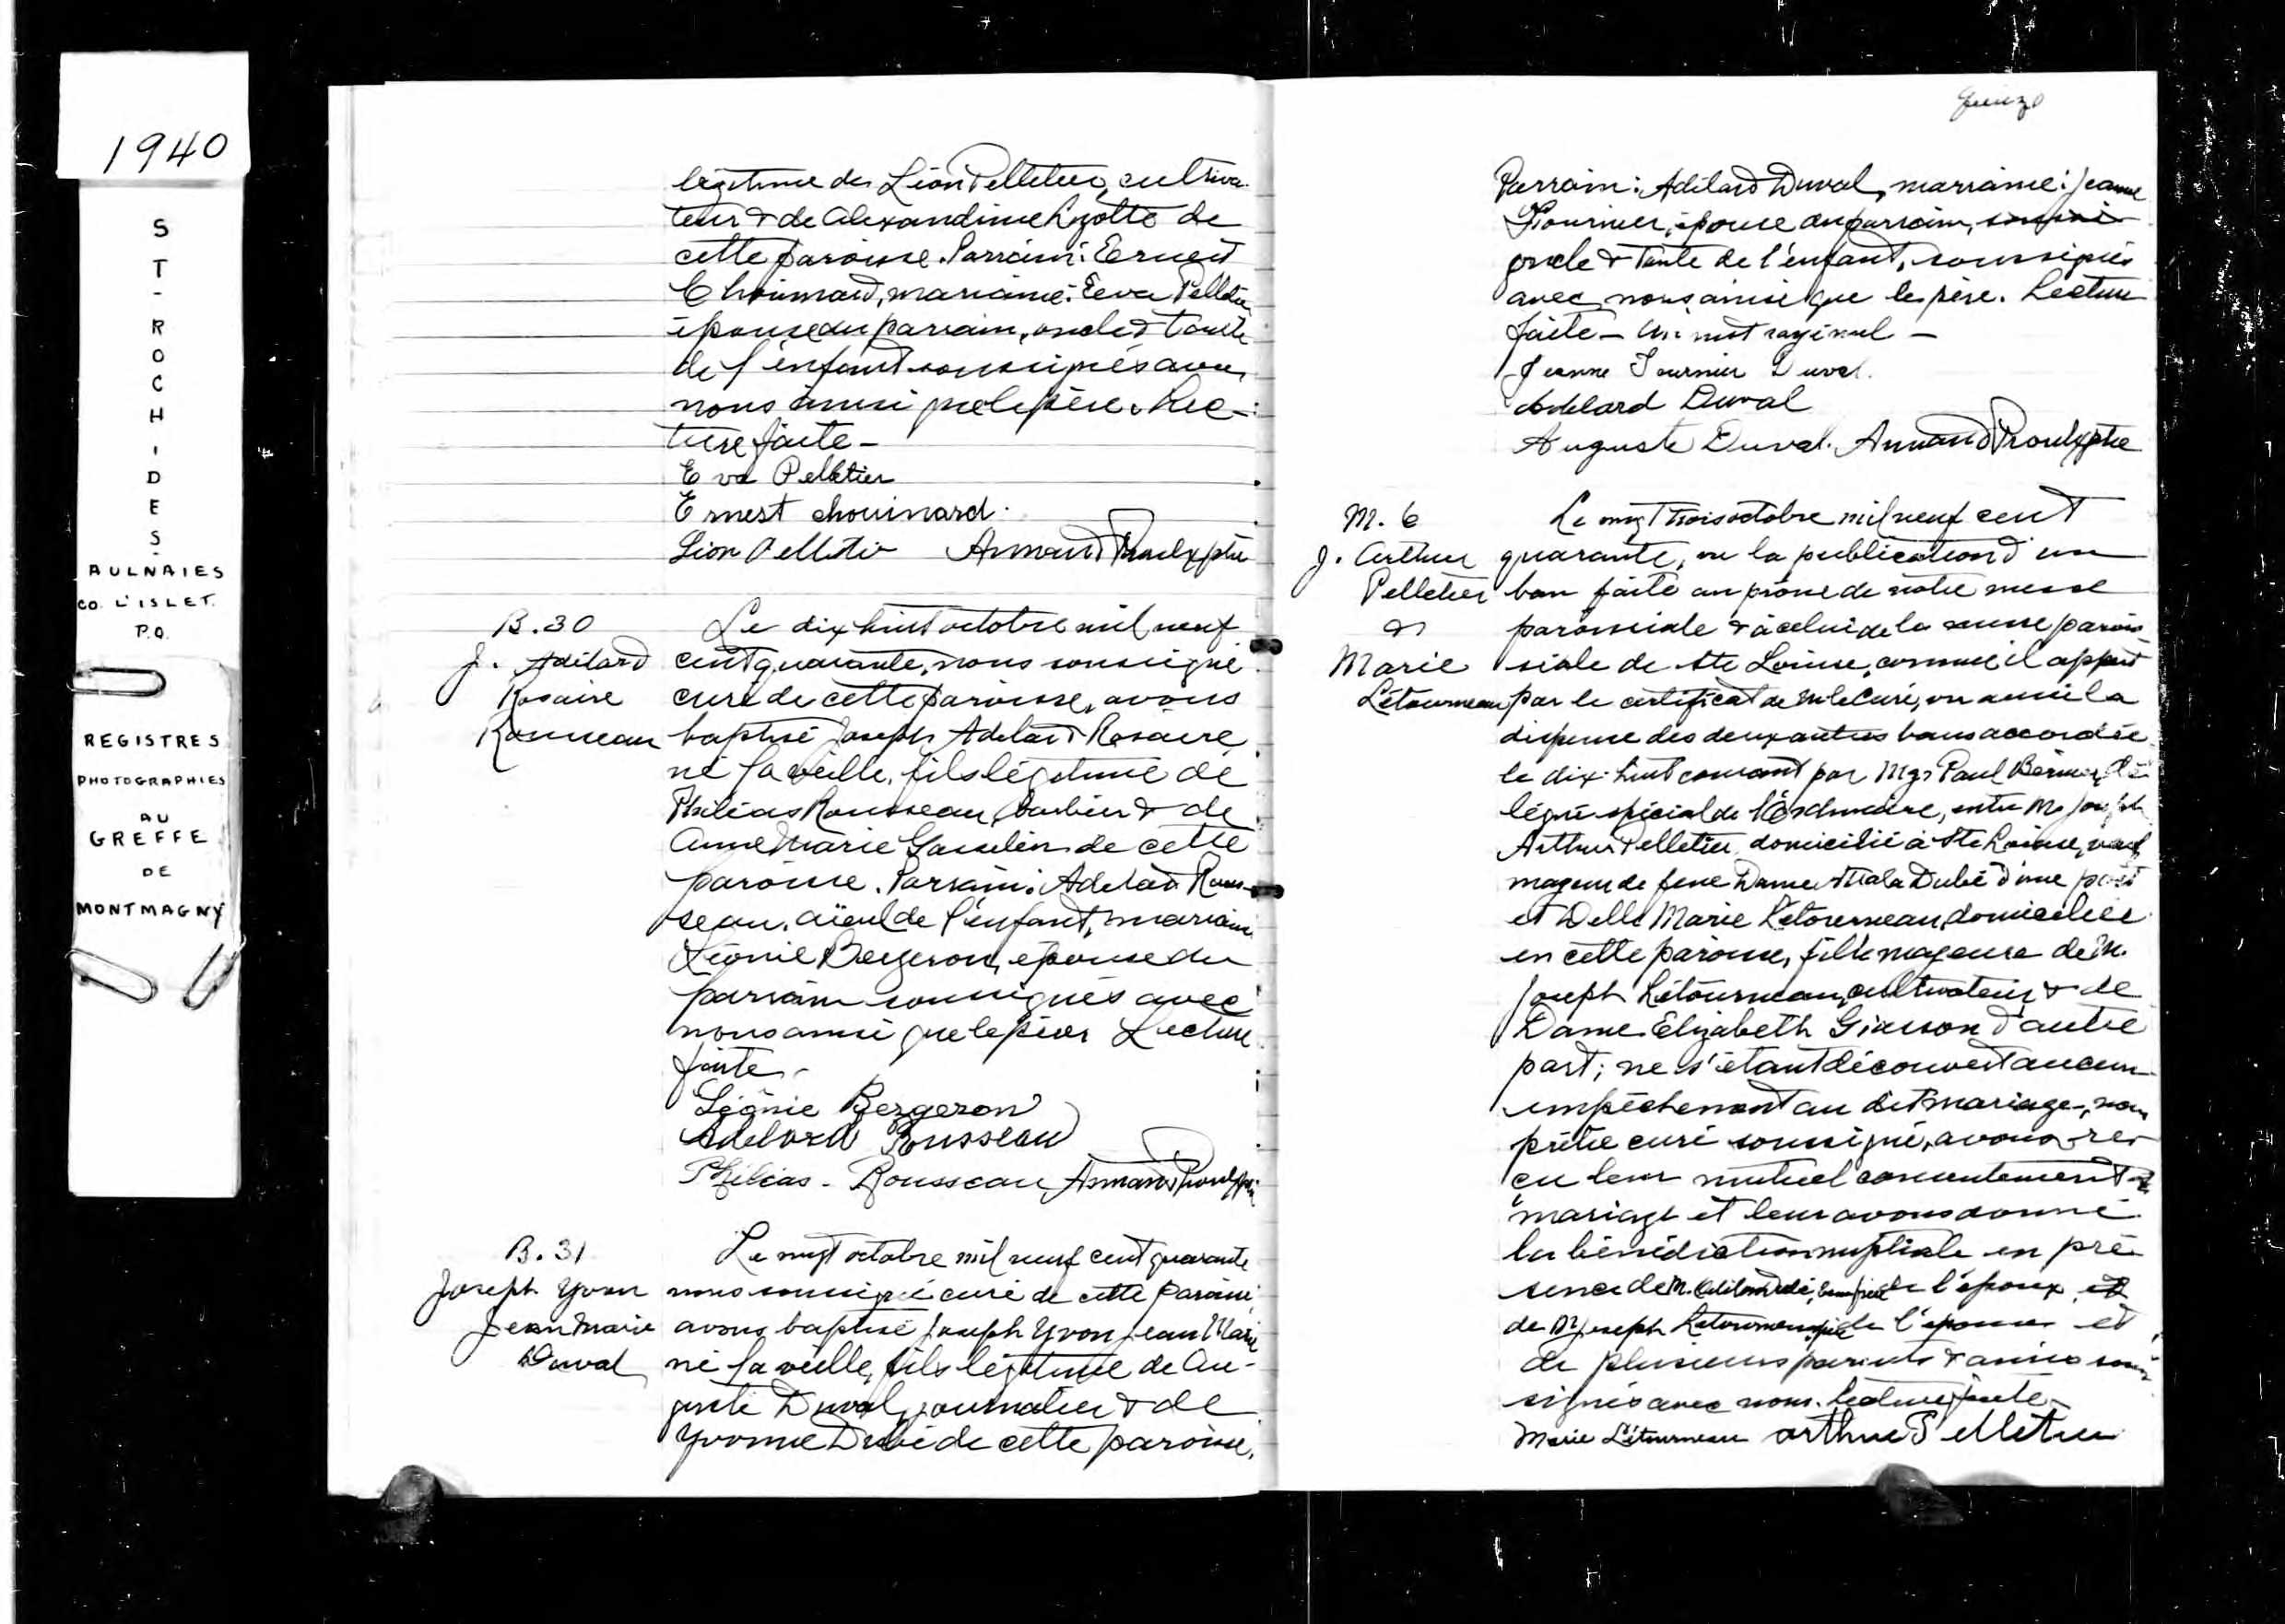 1940
S
T
-
R
O
C
H
-
D
E
S
-
AULNAIES
CO. L'ISLET.
P.Q.
REGISTRES
PHOTOGRAPHIES
AU
GREFFE
DE
MONTMAGNY
légitime de Léon Pelletier, cultiva-
teur & de Alexandrine Lizotte de
cette paroisse. Parrain: Ernest
Chouinard, marraine: Eva Pelletier
épouse du parrain, oncle & tante
de l'enfant soussignés avec
nous ainsi que le père. Lec-
ture faite -
Eva Pelletier
Ernest chouinard.
Léon Pelletier Armand Proulx ptre
B.30
J. Adélard
Rosaire
Rousseau
Le dix huit octobre mil neuf
cent quarante, nous soussigné
curé de cette paroisse, avons
baptisé Joseph Adélard Rosaire
né la veille, fils légitime de
Philéas Rousseau, barbier & de
Anne Marie Gosselin de cette
paroisse. Parrain: Adélard Rous-
seau, aïeul de l'enfant, marraine
Léonie Bergeron, épouse du
parrain soussignés avec
nous ainsi que le père. Lecture
faite -
Léonie Bergeron
Adelard Rousseau
Philéas - Rousseau Armand Proulx ptre
B.31
Joseph Yvon
Jean Marie
Duval
Le vingt octobre mil neuf cent quarante
nous soussigné curé de cette paroisse
avons baptisé Joseph Yvon Jean Marie
né la veille, fils légitime de Au-
guste Duval, journalier & de
Yvonne Dubé de cette paroisse.
Quinze
Parrain: Adélard Duval, marraine: Jeanne
Fournier, épouse du parrain,
oncle & tante de l'enfant, soussignés
avec nous ainsi que le père. Lecture
faite - Un mot rayé nul -
Jeanne Fournier Duval.
Adélard Duval
Auguste Duval. Armand Proulx ptre
M. 6
J. Arthur
Pelletier
&
Marie
Létourneau
Le vingt trois octobre mil neuf cent
quarante, vu la publication d'un
ban faite au prône de notre messe
paroissiale & à celui de la messe parois
siale de Ste Louise, comme il appert
par le certificat de M le Curé, vu aussi la
dispense des deux autres bans accordée
le dix-huit courant par Mgr Paul Bernier, dé-
légué spécial de l'Ordinaire, entre M. Joseph
Arthur Pelletier domicilié à Ste Louise, veuf
majeur de feue Dame Dubé d'une part
et Delle Marie Létourneau, domiciliée
en cette paroisse, fille majeure de M.
Joseph Létourneau, cultivateur & de
Dame Elizabeth Giasson d'autre
part; ne s'étant découvert aucun
empêchement au dit mariage, nous
prêtre curé soussigné, avons re-
çu leur mutuel consentement de
mariage et leur avons donné
la bénédiction nuptiale en pré-
sence de M. de l'époux et
de M Joseph Létourneau père de l'épouse et
de plusieurs parents & amis sous-
signés avec nous. Lecture faite -
Marie Létourneau Arthur Pelletier